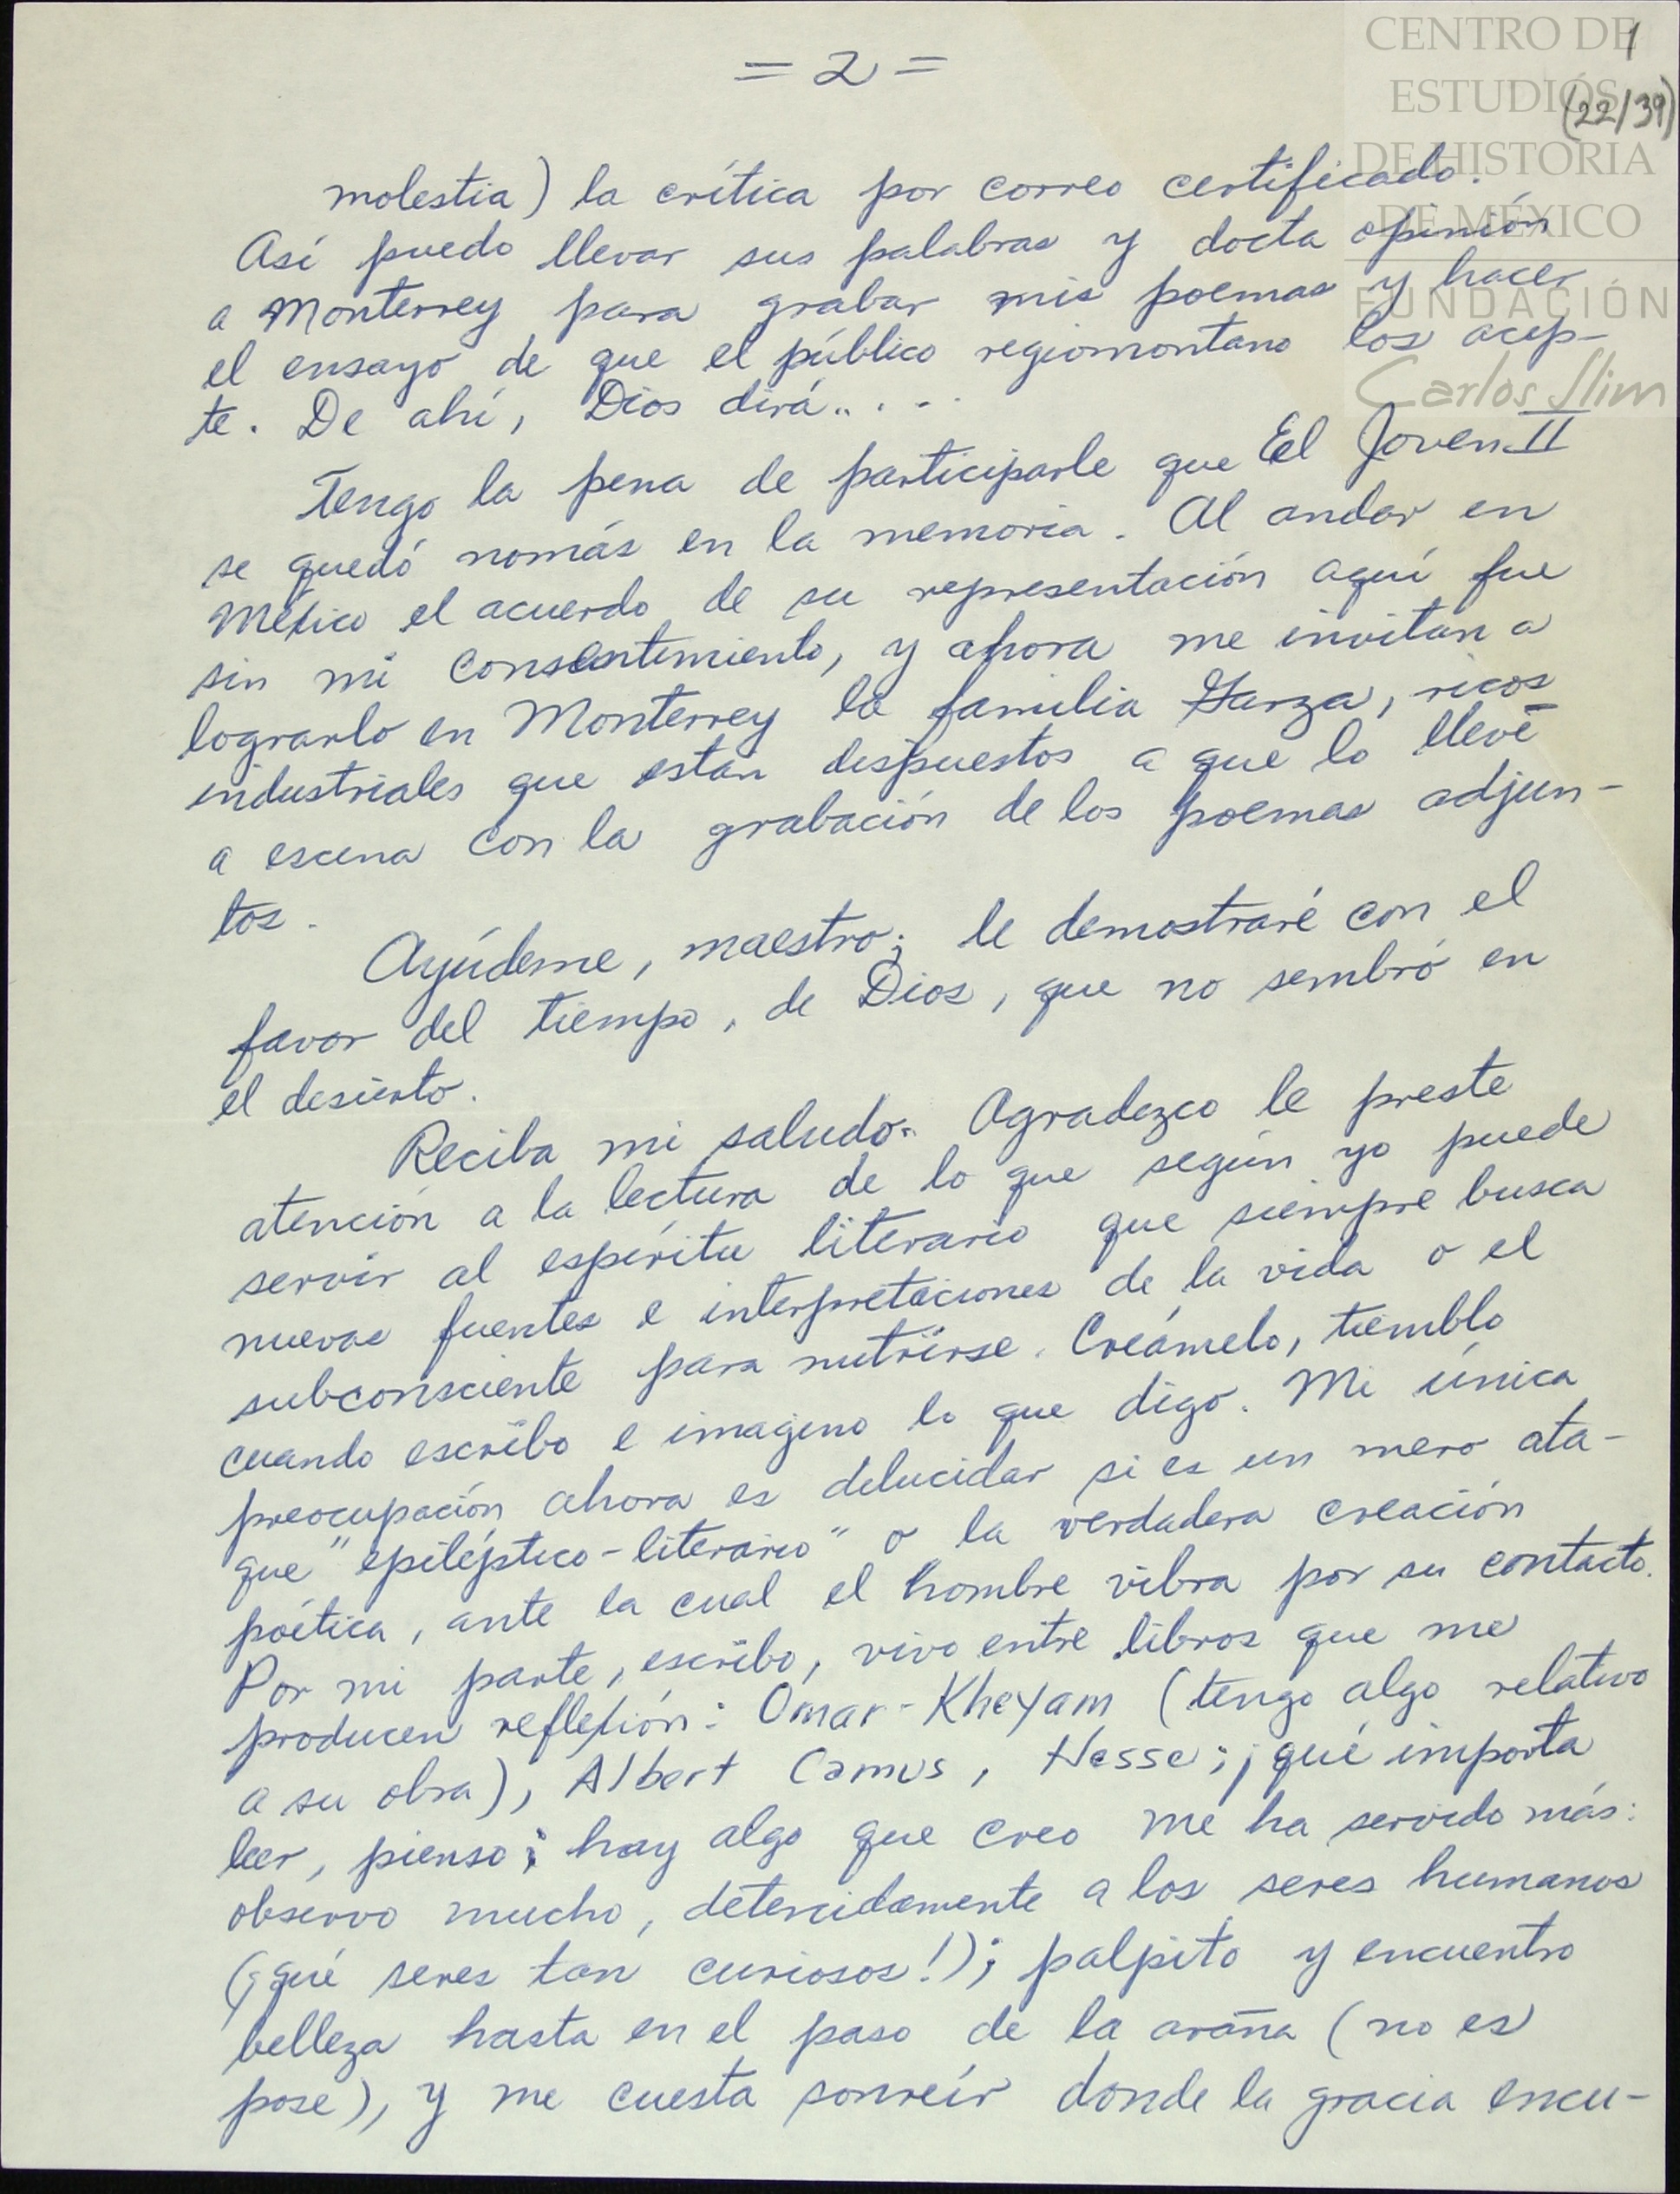 = 2 =
1
(22/39)
CENTRO DE
ESTUDIOS
DE HISTORIA
DE MÉXICO
FUNDACIÓN
Carlos Slim
molestia) la crítica por correo certificado.
Así puedo llevar sus palabras y docta opinión
a Monterrey para grabar mis poemas y hacer
el ensayo de que el público regiomontano los acep-
te. De ahí, Dios dirá.....
Tengo la pena de participarle que El Joven II
se quedó nomás en la memoria. Al andar en
México el acuerdo de su representación aquí fue
sin mi consentimiento, y ahora me invitan a
lograrlo en Monterrey la familia Garza, ricos
industriales que están dispuestos a que lo lleve
a escena con la grabación de los poemas adjun-
tos.
Ayúdeme, maestro; le demostraré con el
favor del tiempo, de Dios, que no sembró en
el desierto.
Reciba mi saludo. Agradezco le preste
atención a la lectura de lo que según yo puede
servir al espíritu literario que siempre busca
nuevas fuentes e interpretaciones de la vida o el
subconsciente para nutrirse. Creámelo, tiemblo
cuando escribo e imagino lo que digo. Mi única
preocupación ahora es delucidar si es un mero ata-
que "epiléptico-literario" o la verdadera creación
poética, ante la cual el hombre vibra por su contacto.
Por mi parte, escribo, vivo entre libros que me
producen reflexión: Omar-Kheyam (tengo algo relativo
a su obra), Albert Camus, Hesse; ¡qué importa
leer, pienso; hay algo que creo me ha servido más:
observo mucho, detenidamente a los seres humanos
(¡qué seres tan curiosos!); palpito y encuentro
belleza hasta en el paso de la araña (no es
pose), y me cuesta sonreír donde la gracia encu-